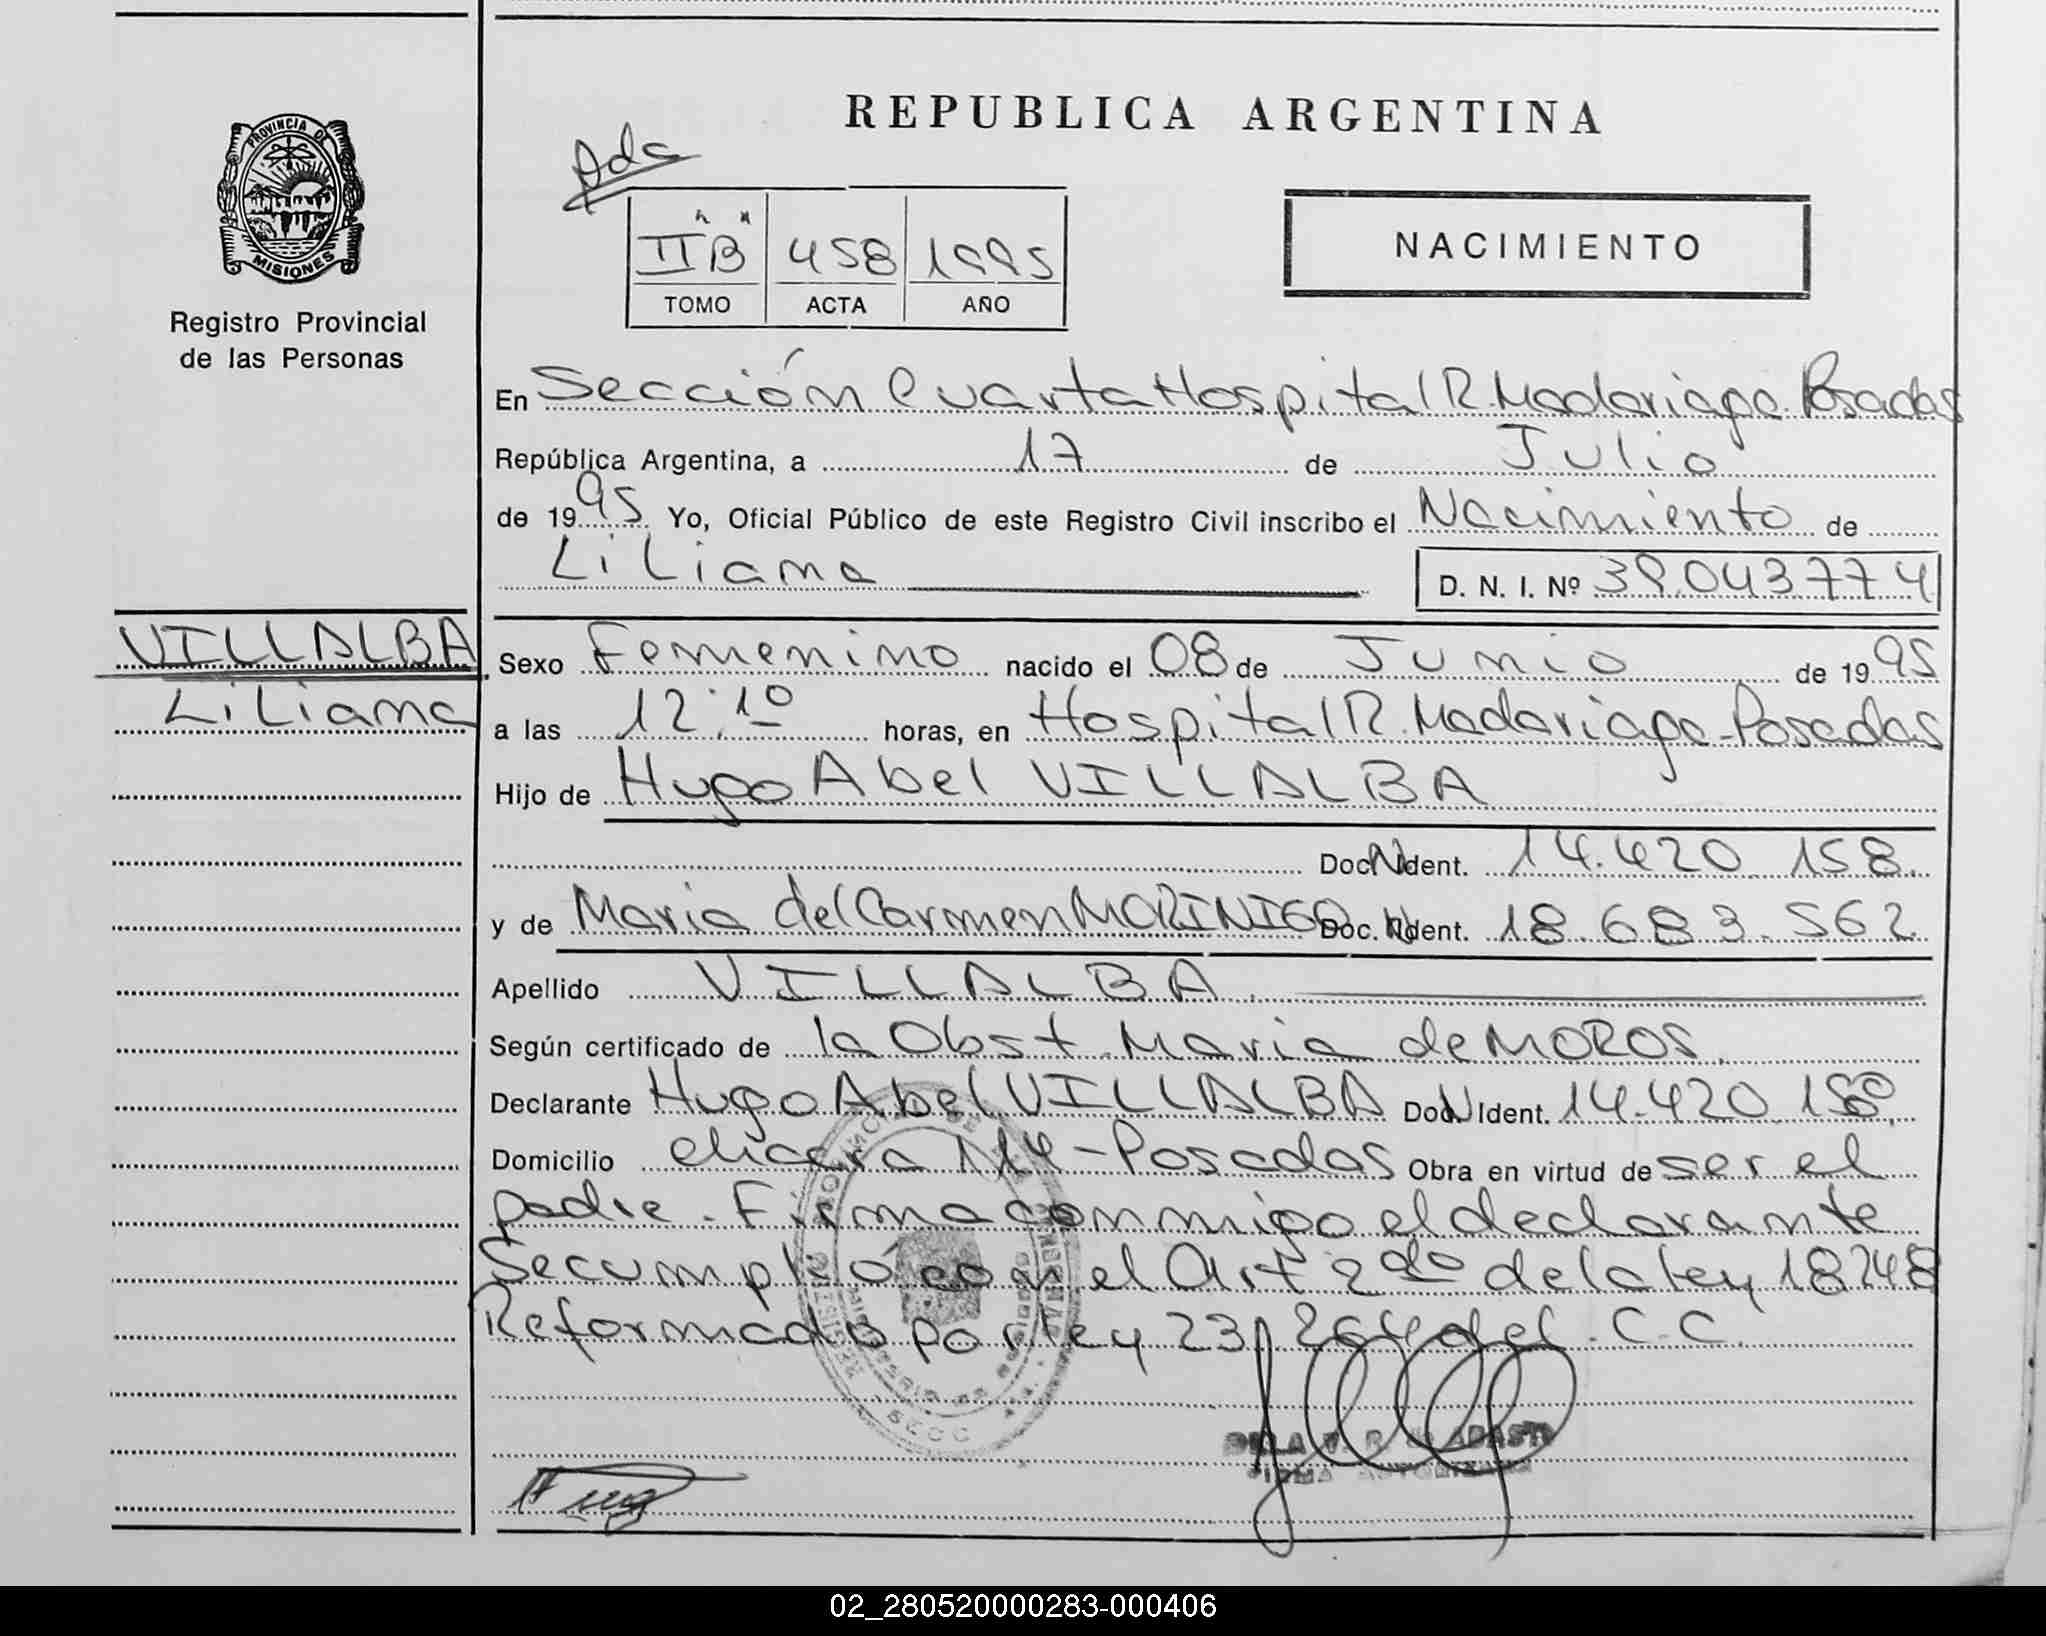 REPUBLICA ARGENTINA
PROVINCIA DE
MISIONES
Registro Provincial
de las Personas
"
IIB 458 1995
TOMO ACTA AÑO
NACIMIENTO
En Sección Cuarta Hospital R. Madariaga. Posadas
República Argentina, a 17 de Julio
de 1995 Yo, Oficial Público de este Registro Civil inscribo el Nacimiento de
Liliana
D. N. I. Nº 39.043.774
VILLALBA
Liliana
Sexo Femenino nacido el 08 de Junio de 1995
a las 12:10 horas, en Hospital R. Madariaga - Posadas
Hijo de Hugo Abel VILLALBA
Doc. N Ident. 14.420.158.
y de Maria del Carmen MORINIGO Doc. N Ident. 18.683.562
Apellido VILLALBA
Según certificado de la Obst. Maria de MOROS.
Declarante Hugo Abel VILLALBA Doc. N Ident. 14.420.158
Domicilio chacra 114 - Posadas Obra en virtud de ser el
padre. Firma conmigo el declarante
Se cumplió con el Art 2do de la ley 18248
Reformado por ley 23.264 del C.C.
02_280520000283-000406